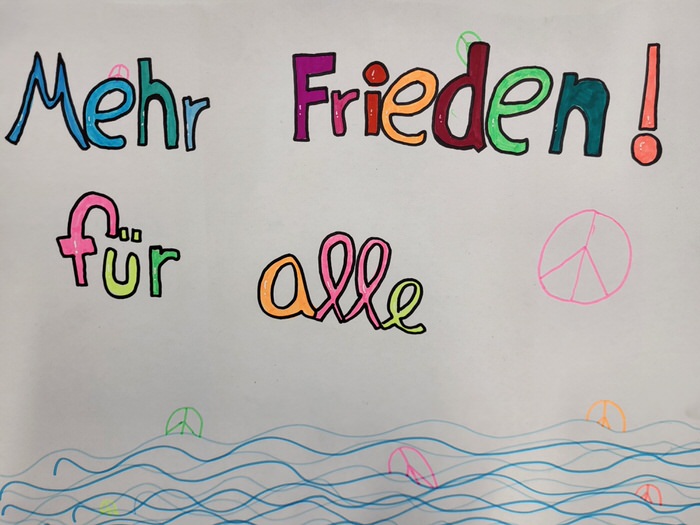 Mehr Frieden!
für alle